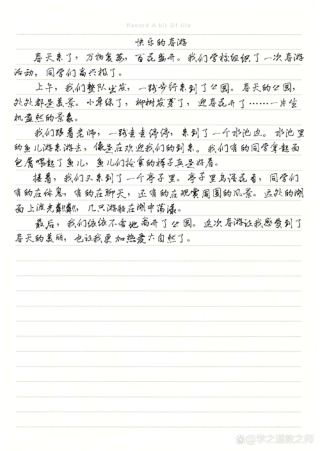 Record A bit Of Life
快乐的春游
春天来了，万物复苏，百花盛开。我们学校组织了一次春游
活动，同学们高兴极了。
上午，我们整队出发，一路步行来到了公园。春天的公园，
处处都是美景。小草绿了，柳树发芽了，迎春花开了……一片生
机盎然的景象。
我们跟着老师，一路走走停停，来到了一个水池边。水池里
的鱼儿游来游去，像是在欢迎我们的到来。我们有的同学拿起面
包屑喂起了鱼儿，鱼儿们抢食的样子真是好看。
接着，我们又来到了一个亭子里。亭子里鸟语花香，同学们
有的在休息，有的在聊天，还有的在观赏周围的风景。远处的湖
面上波光粼粼，几只游船在湖中荡漾。
最后，我们依依不舍地离开了公园。这次春游让我感受到了
春天的美丽，也让我更加热爱大自然了。